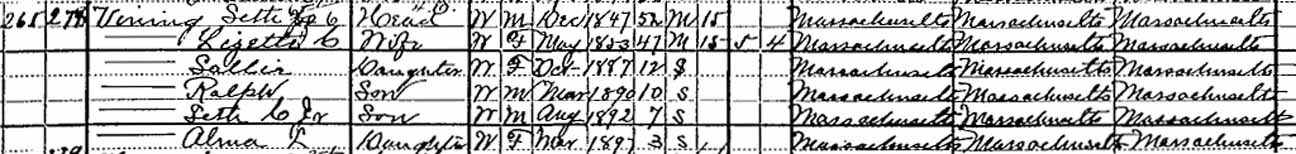 265 278 Vining Seth C Head W M Dec 1847 52 M 15 Massachusetts Massachusetts Massachusetts
Lizette C Wife W F May 1853 47 M 15 5 4 Massachusetts Massachusetts Massachusetts
Sallie Daughter W F Oct 1887 12 S Massachusetts Massachusetts Massachusetts
Ralph Son W M Mar 1890 10 S Massachusetts Massachusetts Massachusetts
Seth C Jr Son W M Aug 1892 7 S Massachusetts Massachusetts Massachusetts
Alma L Daughter W F Mar 1897 3 S Massachusetts Massachusetts Massachusetts